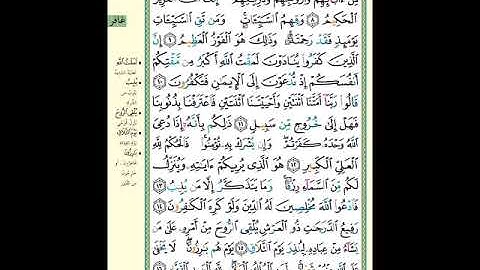 مِنْ ءَابَآئِهِمْ وَأَزْوَٰجِهِمْ وَذُرِّيَّٰتِهِمْ إِنَّكَ أَنتَ ٱلْعَزِيزُ
ٱلْحَكِيمُ ٨ وَقِهِمُ ٱلسَّيِّـَٔاتِ وَمَن تَقِ ٱلسَّيِّـَٔاتِ
يَوْمَئِذٍ فَقَدْ رَحِمْتَهُۥ وَذَٰلِكَ هُوَ ٱلْفَوْزُ ٱلْعَظِيمُ ٩ إِنَّ
ٱلَّذِينَ كَفَرُوا۟ يُنَادَوْنَ لَمَقْتُ ٱللَّهِ أَكْبَرُ مِن مَّقْتِكُمْ
أَنفُسَكُمْ إِذْ تُدْعَوْنَ إِلَى ٱلْإِيمَٰنِ فَتَكْفُرُونَ ١٠
قَالُوا۟ رَبَّنَآ أَمَتَّنَا ٱثْنَتَيْنِ وَأَحْيَيْتَنَا ٱثْنَتَيْنِ فَٱعْتَرَفْنَا بِذُنُوبِنَا
فَهَلْ إِلَىٰ خُرُوجٍ مِّن سَبِيلٍ ١١ ذَٰلِكُم بِأَنَّهُۥٓ إِذَا دُعِىَ
ٱللَّهُ وَحْدَهُۥ كَفَرْتُمْ وَإِن يُشْرَكْ بِهِۦ تُؤْمِنُوا۟ فَٱلْحُكْمُ لِلَّهِ
ٱلْعَلِىِّ ٱلْكَبِيرِ ١٢ هُوَ ٱلَّذِى يُرِيكُمْ ءَايَٰتِهِۦ وَيُنَزِّلُ
لَكُم مِّنَ ٱلسَّمَآءِ رِزْقًا وَمَا يَتَذَكَّرُ إِلَّا مَن يُنِيبُ ١٣
فَٱدْعُوا۟ ٱللَّهَ مُخْلِصِينَ لَهُ ٱلدِّينَ وَلَوْ كَرِهَ ٱلْكَٰفِرُونَ ١٤
رَفِيعُ ٱلدَّرَجَٰتِ ذُو ٱلْعَرْشِ يُلْقِى ٱلرُّوحَ مِنْ أَمْرِهِۦ عَلَىٰ مَن
يَشَآءُ مِنْ عِبَادِهِۦ لِيُنذِرَ يَوْمَ ٱلتَّلَاقِ ١٥ يَوْمَ هُم بَٰرِزُونَ لَا يَخْفَىٰ
غافر
لَمَقْتُ ٱللَّهِ
يُنِيبُ
يُلْقِى ٱلرُّوحَ
يَوْمَ ٱلتَّلَاقِ
بَٰرِزُونَ